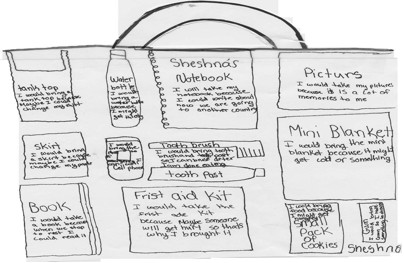 tank top
I would bring a
tank top because
maybe I could
change my shirt
Water
bottle
I would
bring a
water
because
I might
get
Sheshna's
Notebook
I will take my
notebook because
I could write about
how we are going
to another country
Picturs
I would take my picture
because it is a lot of
memories to me
Skirt
I would bring
a skirt because
maybe I could
change my
I would
bring the
cell phone
Tooth brush
I would bring tooth
brush and tooth past
so I
I am done eating
tooth Past
Mini Blanket
I would bring the mini
blanket because it might
get cold or something
Book
I would take
a book because
when we stop
to rest I
could read it
Frist aid Kit
I would take the
Frist ade Kit
because Maybe Someone
will get hurt so thats
why I brought it
I would bring
food because
I might
get
Small
Pack
of
cookies
Sheshna